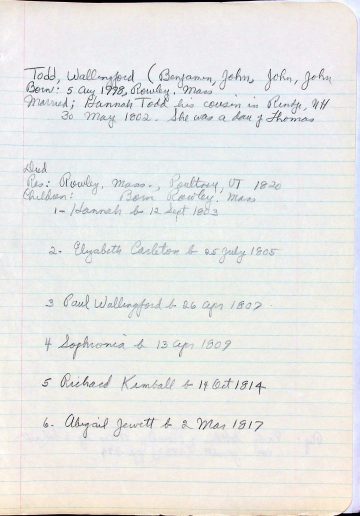 Todd, Wallingford (Benjamin, John, John, John
Born: 5 Aug 1778, Rowley, Mass
Married; Hannah Todd his cousin in Rindge, NH
30 May 1802. She was a dau of Thomas
Died
Res: Rowley, Mass., Poultney, VT 1820
Children: Born Rowley, Mass
1- Hannah b 12 Sept 1803
2- Elizabeth Carleton b 25 July 1805
3 Paul Wallingford b 26 Apr 1807.
4 Sophronia b 13 Apr 1809
5 Richard Kimball b 14 Oct 1814
6. Abigail Jewett b 2 Mar 1817